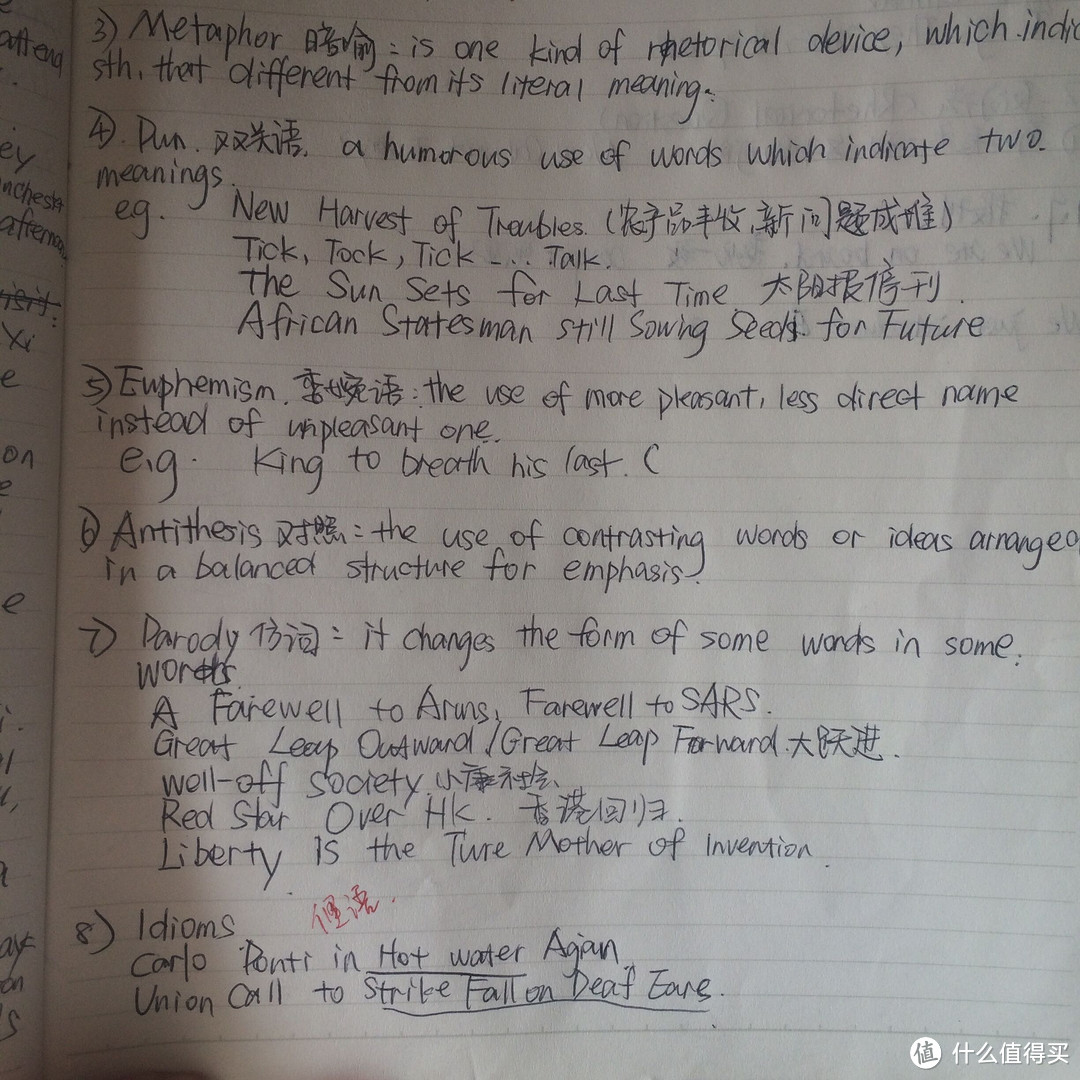 3) Metaphor 暗喻: is one kind of rhetorical device, which indic
sth, that different from its literal meaning.
4). Pun. 双关语. a humorous use of words which indicate two.
meanings.
eg. New Harvest of Troubles. (农产品丰收,新问题成堆)
Tick, Tock, Tick -... Talk.
The Sun Sets for Last Time 太阳报停刊.
African Statesman still Sowing Seeds for Future
5) Euphemism. 委婉语: the use of more pleasant, less direct name
instead of unpleasant one.
e.g. King to breath his last. (
6) Antithesis 对照: the use of contrasting words or ideas arranged
in a balanced structure for emphasis.
7) Parody 仿词: it changes the form of some words in some.
words.
A Farewell to Arms, Farewell to SARS.
Great Leep Outward / Great Leap Forward. 大跃进.
well-off society. 小康社会.
Red Star Over HK. 香港回归.
Liberty Is the Ture Mother of Invention.
8) Idioms 俚语.
Carlo Ponti in Hot water Agian
Union Call to Strike Fall on Deaf Ears.
值 什么值得买